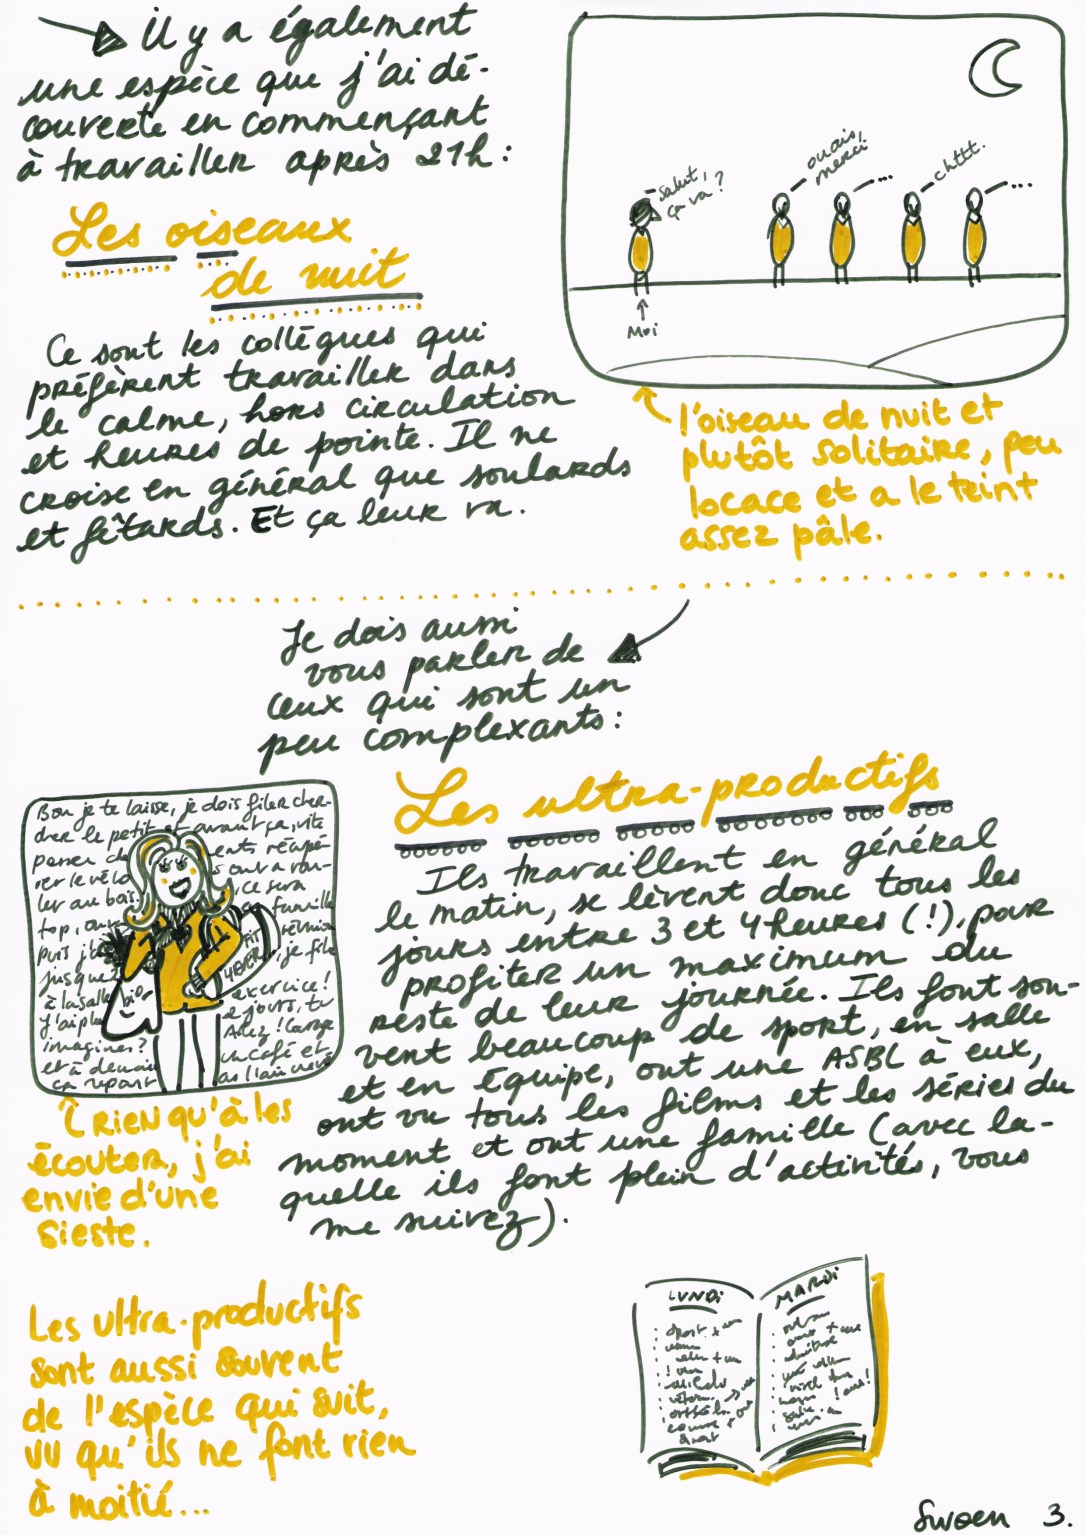 Il y a également
une espèce que j'ai dé-
couverte en commençant
à travailler après 21h :
Les oiseaux
de nuit
Ce sont les collègues qui
préfèrent travailler dans
le calme, hors circulation
et heures de pointe. Il ne
croise en général que soulards
et fêtards. Et ça leur va.
salut,
ça va ?
ouais,
merci
...
chttt.
...
Moi
l'oiseau de nuit et
plutôt solitaire, peu
locace et a le teint
assez pâle.
Je dois aussi
vous parler de
ceux qui sont un
peu complexants :
Les ultra-productifs
Ils travaillent en général
le matin, se lèvent donc tous les
jours entre 3 et 4 heures (!), pour
profiter un maximum du
reste de leur journée. Ils font sou-
vent beaucoup de sport, en salle
et en équipe, ont une ASBL à eux,
ont vu tous les films et les séries du
moment et ont une famille (avec la-
quelle ils font plein d'activités, vous
me suivez).
Bon je te laisse, je dois filer cher-
cher le petit et avant ça, vite
passer récupé-
rer le vélo
ler au bois. sera
top, famille
puis réunion
jusque , je file
à la salle bio 4EVER
J'ai exercice !
imagines ? 2 jours, tu
et à demain Allez ! Courage
ça repart un café et
RIEN qu'à les
écouter, j'ai
envie d'une
sieste.
Les ultra-productifs
sont aussi souvent
de l'espèce qui suit,
vu qu'ils ne font rien
à moitié...
LUNDI
MARDI
Swoen 3.